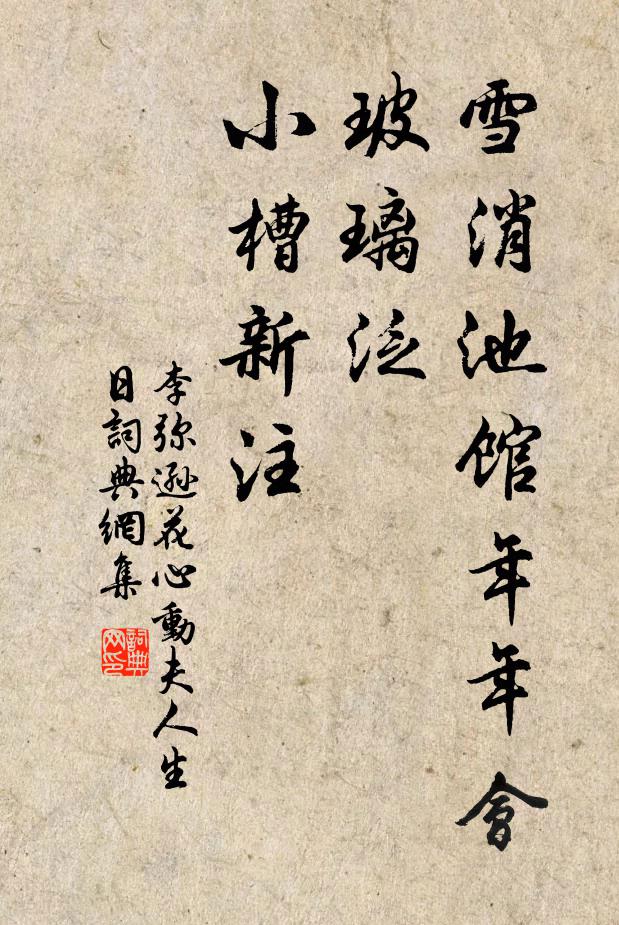 雪消池館年年會
玻璃泛
小槽新注
李弥遜花心動夫人生
日詞典網集
詞典
网印